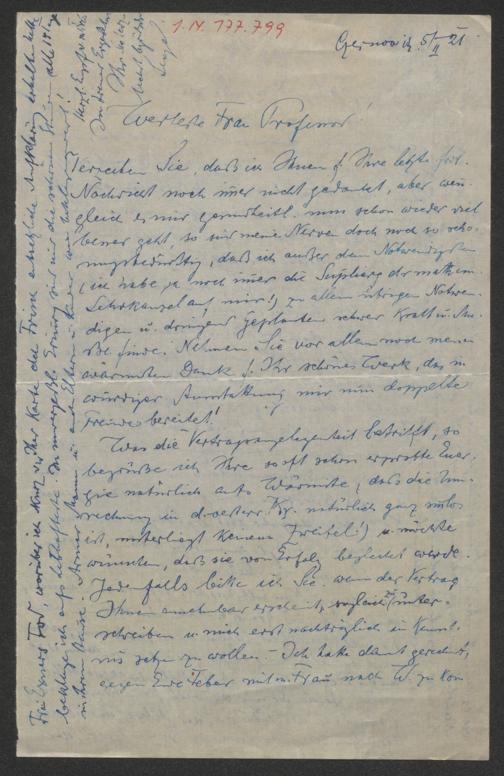 1.N. 177.799
Czernowitz 5/II 21
Verehrteste Frau Professor!
Verzeihen Sie, daß ich Ihnen f. Ihre letzte frdl.
Nachricht noch immer nicht gedankt, aber wen-
gleich es mir gesundheitl. nun schon wieder viel
besser geht, so sind meine Nerven doch noch so scho-
nungsbedürftig, daß ich außer dem Notwendigsten
(ich habe ja noch immer die der mathem.
Lehrkanzel auf mir!) zu allem übrigen Notwen-
digen u. dringend geplanten schwer Kraft u. Mu-
ße finde. Nehmen Sie vor allem noch meinen
wärmsten Dank f. Ihr schönes Werk, das in
würdiger Ausstattung mir nun doppelte
Freude bereitet!
Was die Vertragsangelegenheit betrifft, so
begrüße ich Ihre so oft schon erprobte Ener-
gie natürlich aufs Wärmste, daß die Um-
rechnung in d. oesterr. Kr. natürlich ganz
ist, unterliegt keinem Zweifel!) u. möchte
wünschen, daß sie von Erfolg begleitet werde.
Jedenfalls bitte ich Sie, wenn der Vertrag
Ihnen annehmbar erscheint, sogleich zu unter-
schreiben u. mich erst nachträglich in Kennt-
nis setzen zu wollen. – Ich hatte damit gerechnet,
gegen Ende Feber mit m. Frau nach W. zu kom
Frau Exners Tod, worüber ich kurz v. Ihrer Karte die
beklage ich aufs lebhafteste.